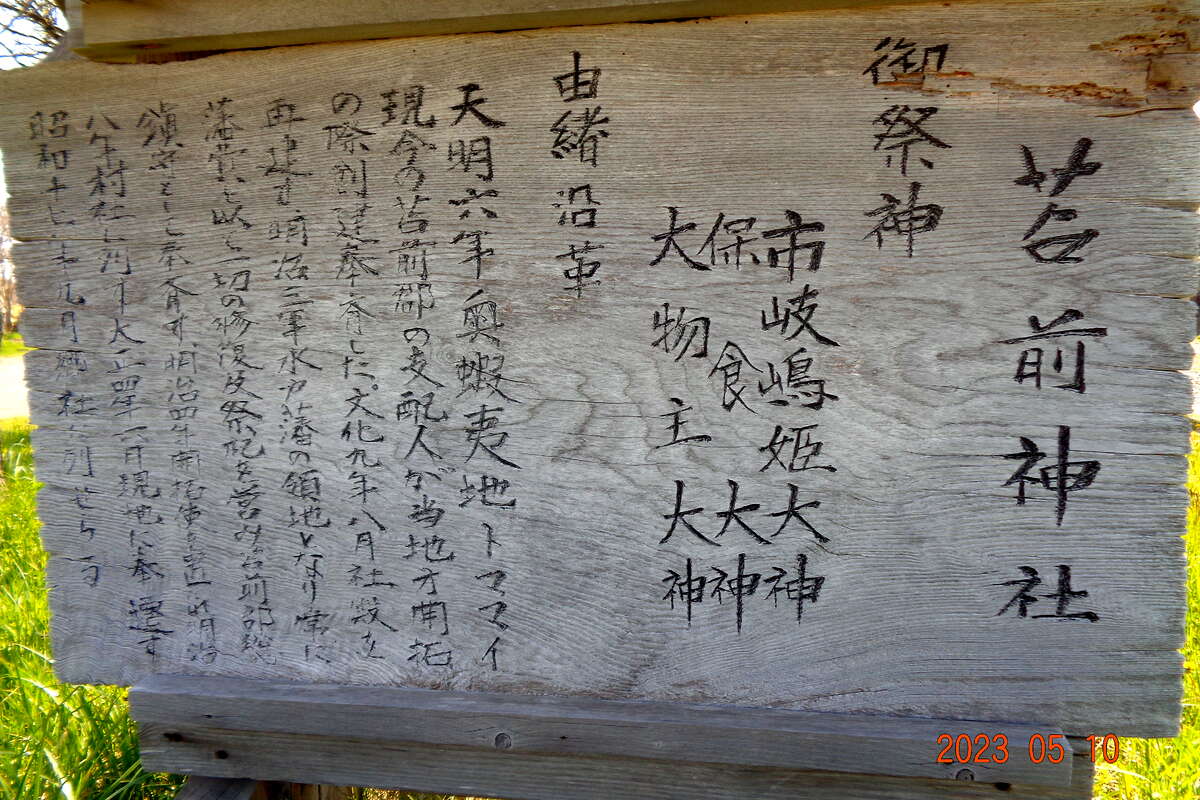 苫前神社
御祭神
市岐嶋姫大神
保食大神
大物主大神
由緒沿革
天明六年奥蝦夷地トママイ
現今の苫前郡の支配人が当地方開拓
の際創建奉斎した。文化九年八月社殿を
再建す、明治二年水戸藩の領地となり常に
藩費を以て一切の修復及祭祀を営み苫前郡総
鎮守として奉斎す、明治四年開拓使
八年村社に列す大正 年 月現地に奉遷す
昭和十 年九月郷社に列せらる
2023 05 10